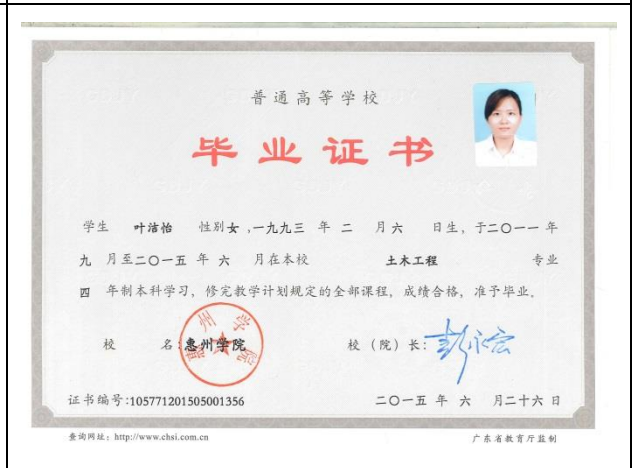 普通高等学校
毕业证书
学生 叶洁怡 性别女,一九九三 年 二 月六 日生,于二〇一一 年
九 月至二〇一五 年 六 月在本校 土木工程 专业
四 年制本科学习,修完教学计划规定的全部课程,成绩合格,准予毕业。
校 名:惠州学院 校(院)长:彭永宏
惠州学院
证书编号:105771201505001356 二〇一五 年 六 月二十六 日
查询网址:http://www.chsi.com.cn 广东省教育厅监制